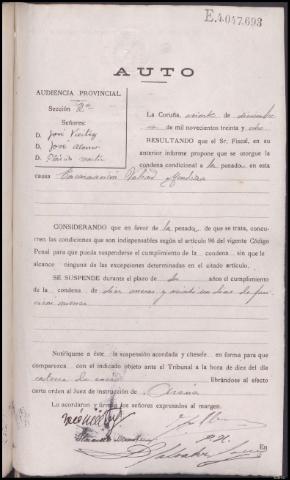 E.4.047.693
AUTO
AUDIENCIA PROVINCIAL
Sección 2ª
Señores:
D. José
D. José
D.
La Coruña, veinte de diciembre
de mil novecientos treinta y ocho
RESULTANDO que el Sr. Fiscal, en su
anterior informe propone que se otorgue la
condena condicional a la penada, en esta
causa Encarnación
CONSIDERANDO que en favor de la penada, de que se trata, concu-
rren las condiciones que son indispensables según el artículo 96 del vigente Código
Penal para que pueda suspenderse el cumplimiento de la condena sin que le
alcance ninguna de las excepciones determinadas en el citado artículo.
SE SUSPENDE durante el plazo de años el cumplimiento
de la condena de diez meses y veintiún días de
menor
Notifíquese a éste la suspensión acordada y cítesele en forma para que
comparezca con el indicado objeto ante el Tribunal a la hora de diez del día
catorce de enero librándose al efecto
carta orden al Juez de instrucción de
Lo acordaron y firman los señores expresados al margen.
P. H.
Salvador
En